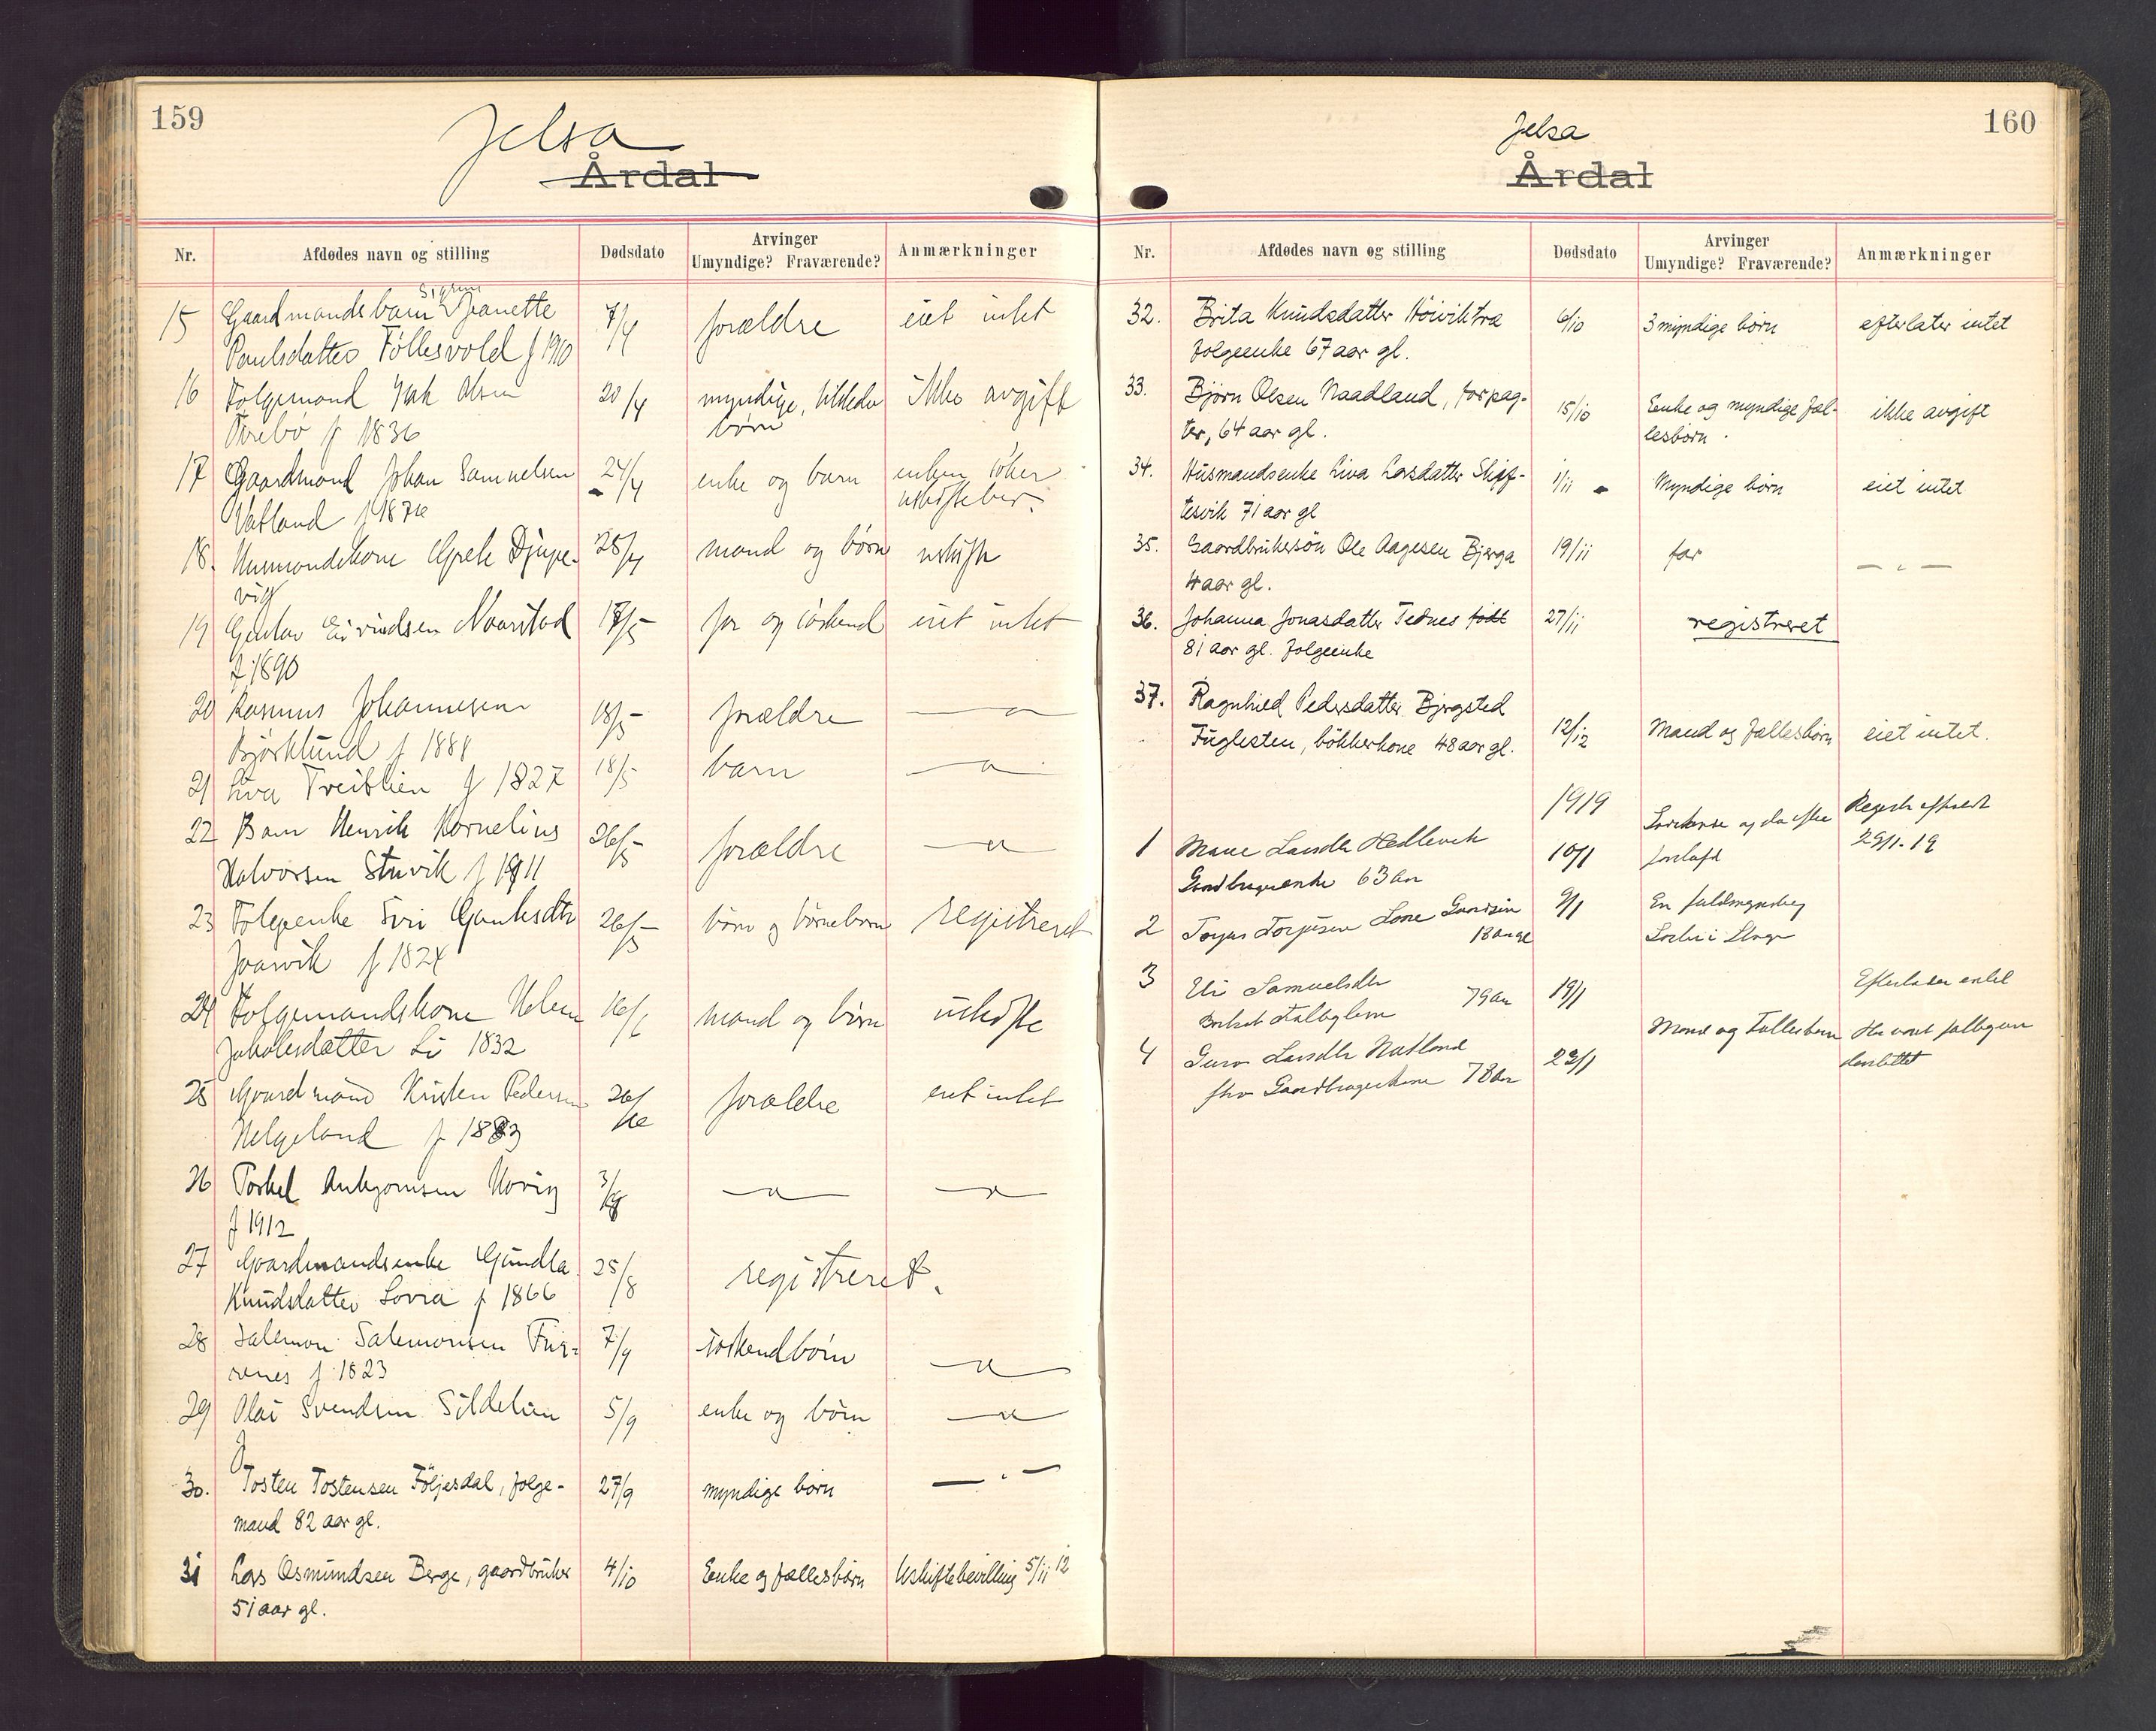 159
Jelsa
Årdal
Nr. Afdødes navn og stilling Dødsdato Arvinger Umyndige? Fraværende? Anmærkninger
15 Gaardmandsbarn Sigrun Jeanette 7/4 forældre eiet intet
Paulsdatter Føllesvold f 1910
16 Folgemand Olsen 20/4 myndige, ikke avgift
Trebø f 1836 børn
17 Gaardmand Johan Samuelsen 24/4 enke og barn enken søker
Vatland f 1874 uskiftebev.
18. Husmandskone Grete Djupe- 25/4 mand og børn uskifte
vig
19 Gustav Eivindsen Naarstad 18/5 far og søskend eiet intet
f 1890
20 Rasmus Johannesen 18/5 forældre — " —
Bjørklund f 1888
21 Liva Treiblien f 1827 18/5 barn — " —
22 Barn Henrik Kornelius 26/5 forældre — " —
Halvorsen Struvik f 1911
23 Folgeenke Siri Gautesdtr 26/5 børn og børneborn registreret
Joarvik f 1824
24 Folgemandskone Helene 16/6 mand og børn uskifte
Jakobsdatter Li 1832
25 Gaardmand Kristen Pedersen 26/ forældre eiet intet
Helgeland f 1883
26 Torkel Hovig 3/8 — " — — " —
f 1912
27 Gaardmandsenke Gundla 25/8 registreret.
Knudsdatter Lovra f 1866
28 Salemon Salemonsen Fur- 7/9 søskendbørn — " —
renes f 1823
29 Olai Svendsen Sildelien 5/9 enke og børn — " —
f
30. Tosten Tostensen Följesdal, folge- 27/9 myndige børn — " —
mand 82 aar gl.
31 Lars Osmundsen Berge, gaardbruker 4/10 Enke og fællesbørn Uskiftebevilling 5/11 12
51 aar gl.
160
Jelsa
Årdal
Nr. Afdødes navn og stilling Dødsdato Arvinger Umyndige? Fraværende? Anmærkninger
32. Brita Knudsdatter Höiviktræ 6/10 3 myndige børn efterlater intet
folgeenke 67 aar gl.
33. Bjørn Olsen Naadland, forpag- 15/10 Enke og myndige fæl- ikke avgift
ter, 64 aar gl. lesbørn.
34. Husmandsenke Liva Larsdatter Skif- 1/11 Myndige børn eiet intet
tesvik 71 aar gl
35. Gaardbrukersön Ole Aagesen Bjerga 19/11 far — " —
4 aar gl.
36. Johanna Jonasdatter Tednes født 27/11 registreret
81 aar gl. folgeenke
37. Ragnhild Pedersdatter Bjergsted
Fuglesten, bökkerkone 48 aar gl. 12/12 Mand og fællesbörn eiet intet.
1919
1 Larsdtr Hedlevik 10/1 29/1-19
63 aar
2 Torjus Torjusen Lone 9/1 En
18 aar gl
3 Samuelsdtr 79 aar 19/1 Efterlater intet
4 Guro Larsdtr Natland 22/1 Mand og Fællesbørn
78 aar